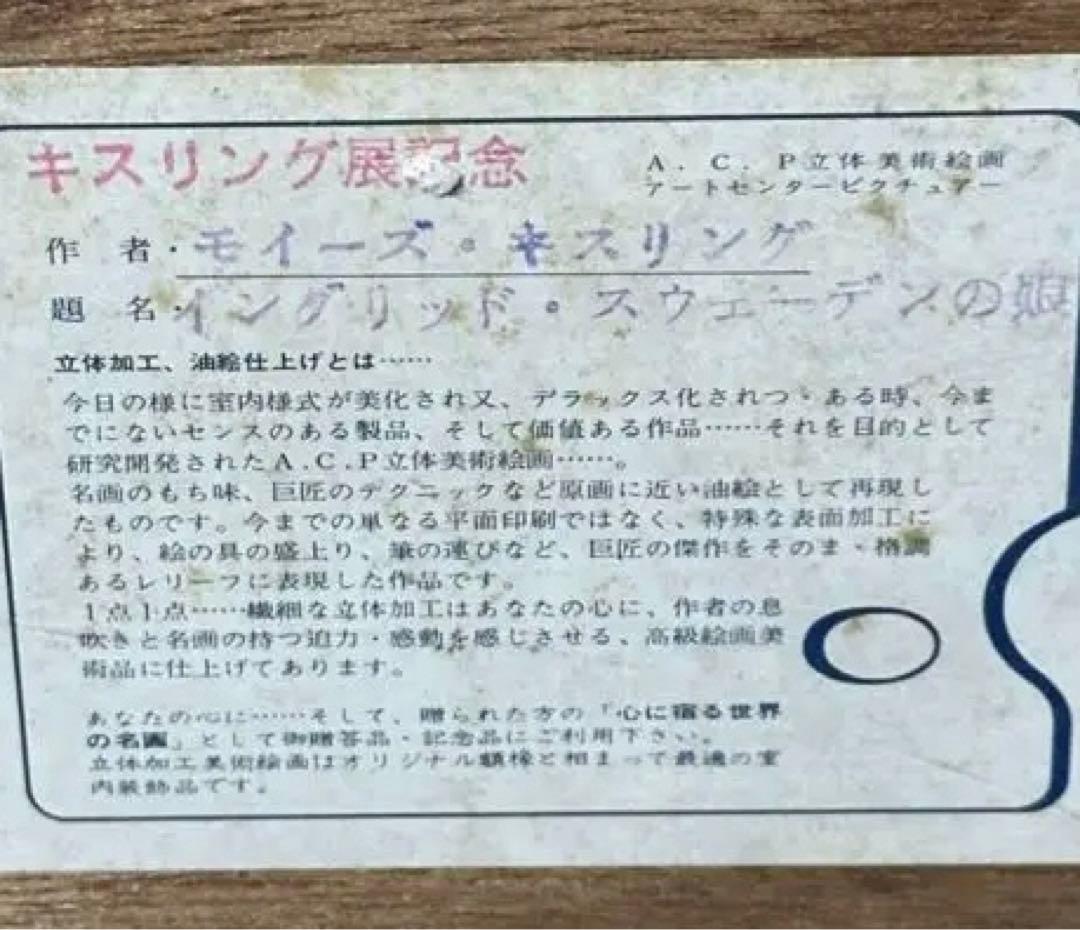 キスリング展記念
A．C．P立体美術絵画
アートセンターピクチュアー
作　者・モイーズ・キスリング
題　名・イングリッド・スウェーデンの娘
立体加工、油絵仕上げとは……
今日の様に室内様式が美化され又、デラックス化されつゝある時、今ま
でにないセンスのある製品、そして価値ある作品……それを目的として
研究開発されたA.C.P立体美術絵画……。
名画のもち味、巨匠のテクニックなど原画に近い油絵として再現し
たものです。今までの単なる平面印刷ではなく、特殊な表面加工に
より、絵の具の盛上り、筆の運びなど、巨匠の傑作をそのまゝ格調
あるレリーフに表現した作品です。
1点1点……繊細な立体加工はあなたの心に、作者の息
吹きと名画の持つ迫力・感動を感じさせる、高級絵画美
術品に仕上げてあります。
あなたの心に……そして、贈られた方の「心に宿る世界
の名画」として御贈答品・記念品にご利用下さい。
立体加工美術絵画はオリジナル額椽と相まって最適の室
内装飾品です。